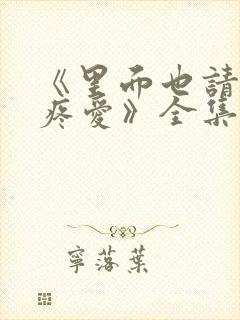 《里而也請
疼愛》全集
寧落葉